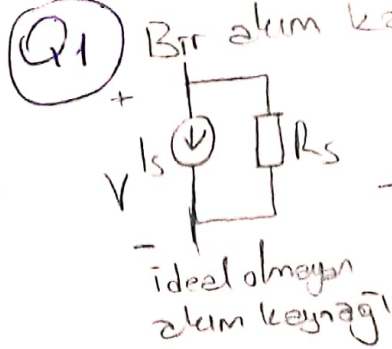 Q1 Bir akım
+
Is
Rs
V
-
-
ideal olmayan
akım kaynağı